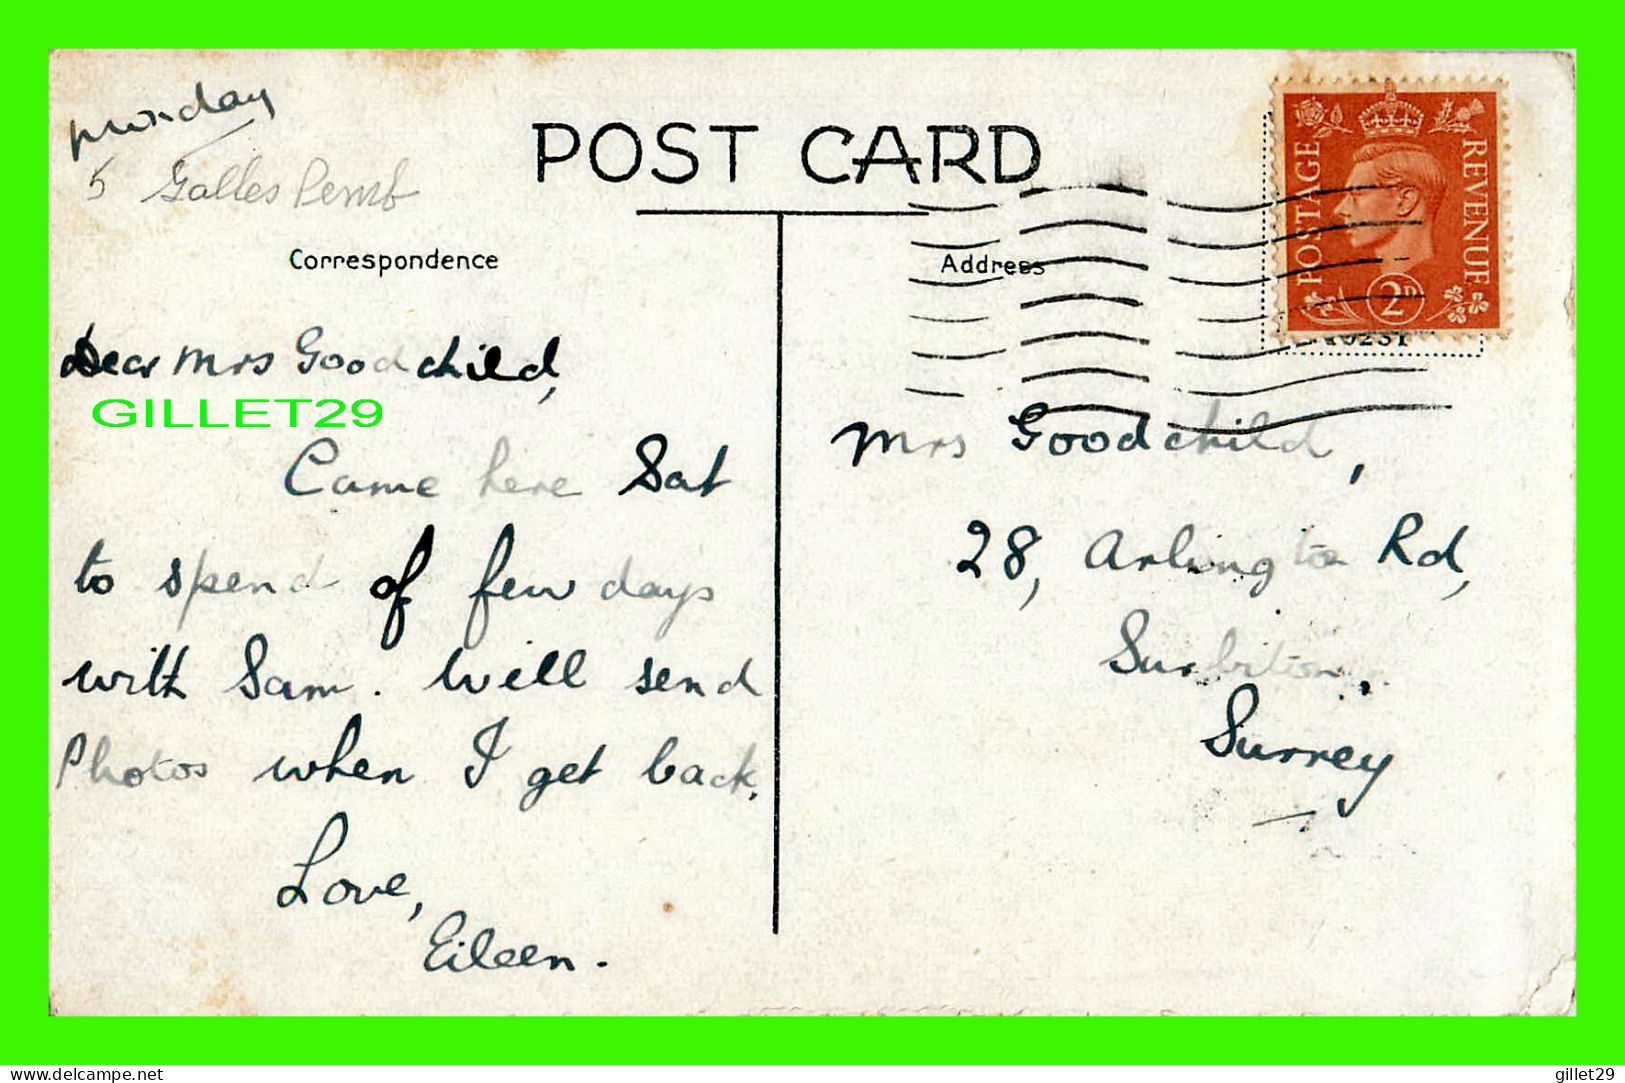 Monday
5 Galles Pemb
POST CARD
Correspondence
Address
POSTAGE REVENUE
2D
Dear Mrs Goodchild,
GILLET29
Came here Sat
to spend of few days
with Sam. Will send
Photos when I get back.
Love,
Eileen.
Mrs Goodchild,
28, Arlington Rd,
Surbiton,
Surrey
www.delcampe.net
gillet29